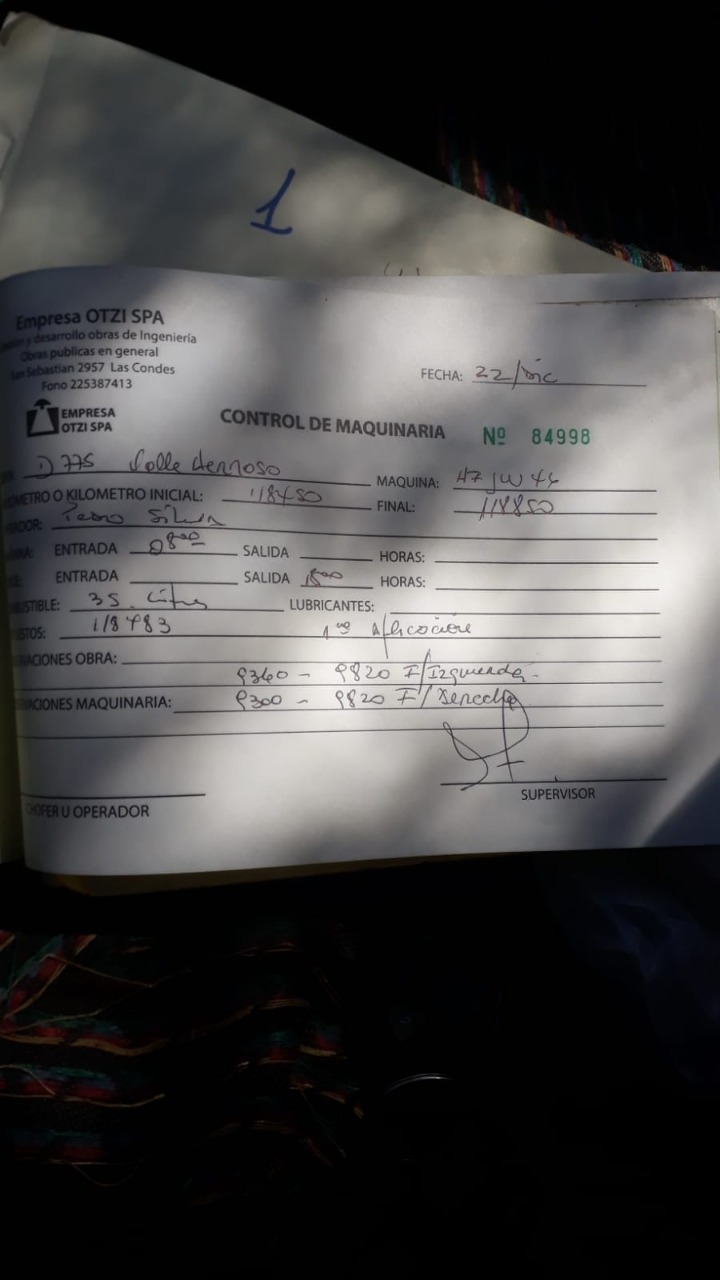 1
Empresa OTZI SPA
y desarrollo obras de Ingeniería
Obras publicas en general
Sebastian 2957 Las Condes
Fono 225387413
FECHA: 22/Dic
EMPRESA
OTZI SPA
CONTROL DE MAQUINARIA Nº 84998
D 775 Valle Hermoso MAQUINA:
METRO O KILOMETRO INICIAL: 118450 FINAL: 118850
Pedro Silva
ENTRADA 0800 SALIDA HORAS:
ENTRADA SALIDA 1800 HORAS:
USTIBLE: 35 Litros LUBRICANTES:
118483 1ra Aplicacion
VACIONES OBRA:
9360 - 9820 F/Izquierda.
VACIONES MAQUINARIA: 9300 - 9820 F/Derecha
CHOFER U OPERADOR
SUPERVISOR